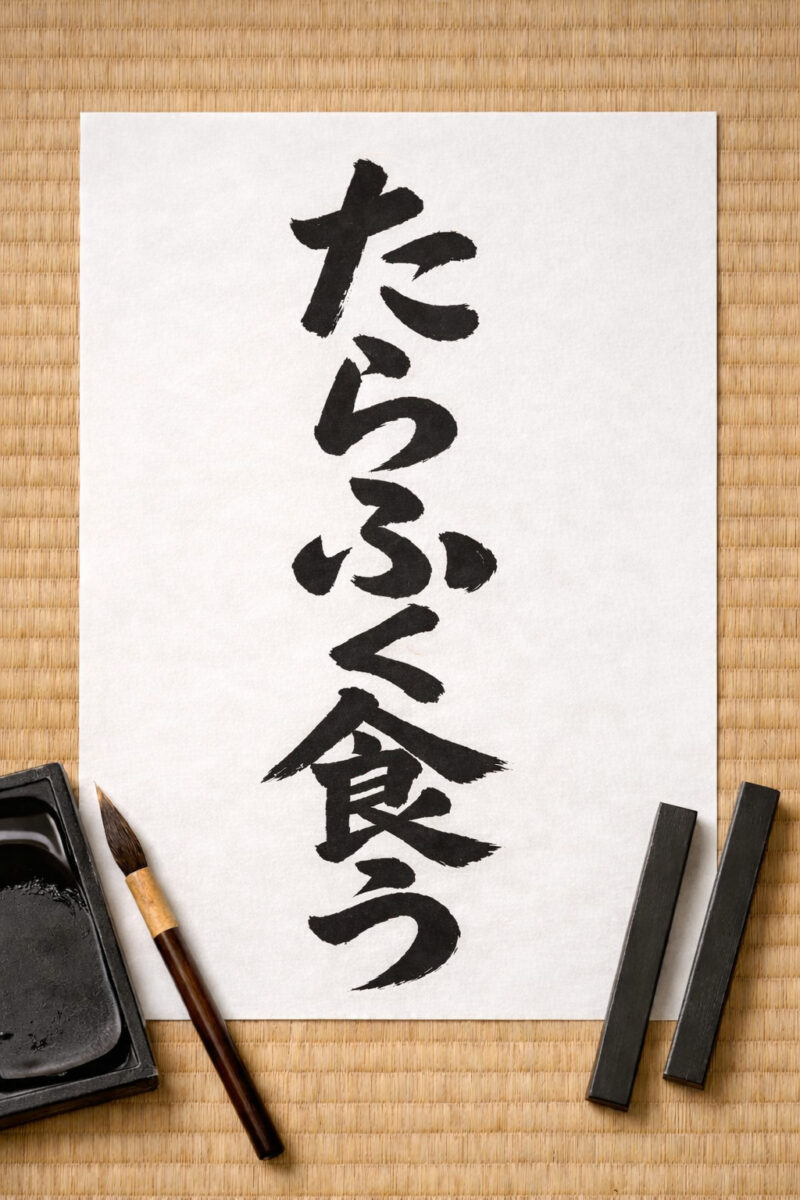 たらふく食う